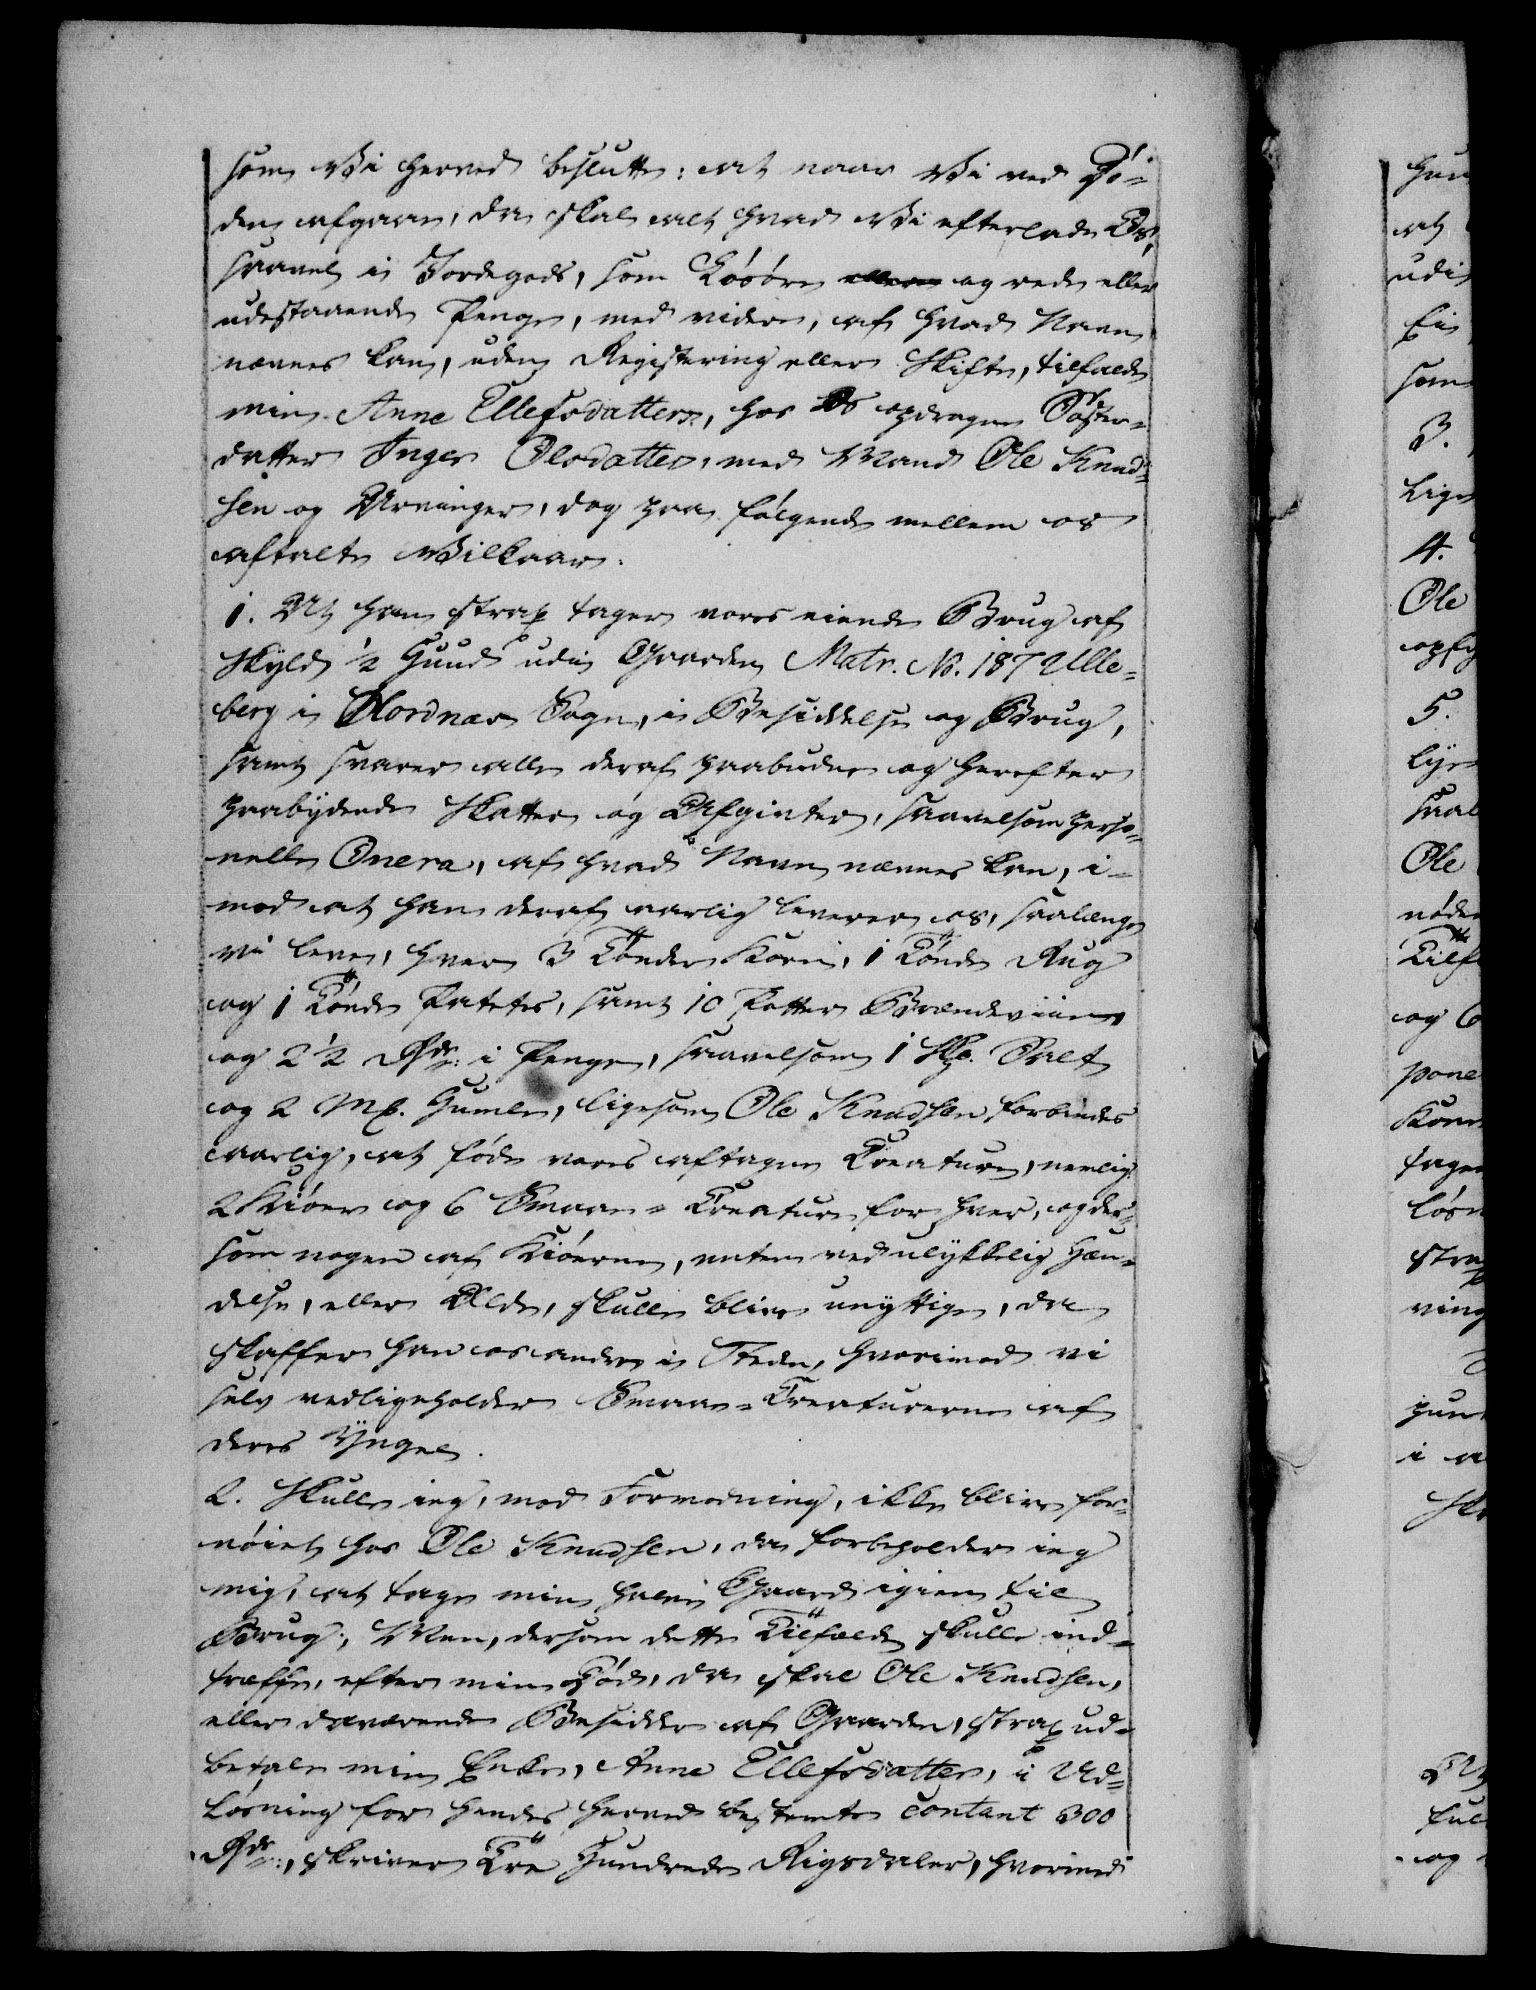 som Vi herved beslutte: at naar Vi ved Dö-
den afgaaer, da skal alt hvad Vi efterlade Os,
saavel i Jordegods, som Lösöre og rede eller
udestaaende Penge, med videre, af hvad Navn
nævnes kan, uden Registering eller Skifte, tilfalde
min Anne Ellefsdatters, hos Os opdragne Söster-
datter Inger Olsdatter, med Mand Ole Knud-
sen og Arvinger, dog paa fölgende mellem os
aftalte Vilkaar.
1. At han strax tager vores eiende Brug af
Skyld 1/2 Huud udi Gaarden Matr. No. 187 Ulle-
berg i Hordnæs Sogn, i Besiddelse og Brug,
samt svarer alle deraf paabudne og herefter
paabydende Skatter og Afgivter, saavelsom perso-
nelle Onera, af hvad Navn nævnes kan, i-
mod at han deraf aarlig leverer os, saalænge
vi leve, hver 3 Tönder Korn, 1 Tönde Rug
og 1 Tönde Potetes, samt 10 Potter Brændeviin
og 2 1/2 Rdr: i Penge, saavelsom 1 Skp. Salt
og 2 Mk. Humle, ligesom Ole Knudsen forbindes
aarlig, at föde vores aftagne Creature, nemlig
2 Kiöer og 6 Smaae-Creature for hver, og der-
som nogen af Kiöerne, enten ved ulykkelig Hæn-
delse, eller Ælde, skulle blive unyttige, da
skaffer han os andre i Stede, hvorimod vi
selv vedligeholder Smaae-Creaturerne af
deres Yngel.
2. Skulle ieg, mod Formodning, ikke blive for-
nöiet hos Ole Knudsen, da forbeholder ieg
mig, at tage min halve Gaard igien til
Brug; Men, dersom dette Tilfælde skulle ind-
træffe, efter min Död, da skal Ole Knudsen,
eller daværende Besidder af Gaarden, strax ud-
betale min Enke, Anne Ellefsdatter, i Ud-
lösning for hendes herved bestemte contant 300
Rdr:, skriver Tre Hundrede Rigsdaler, hvorimod